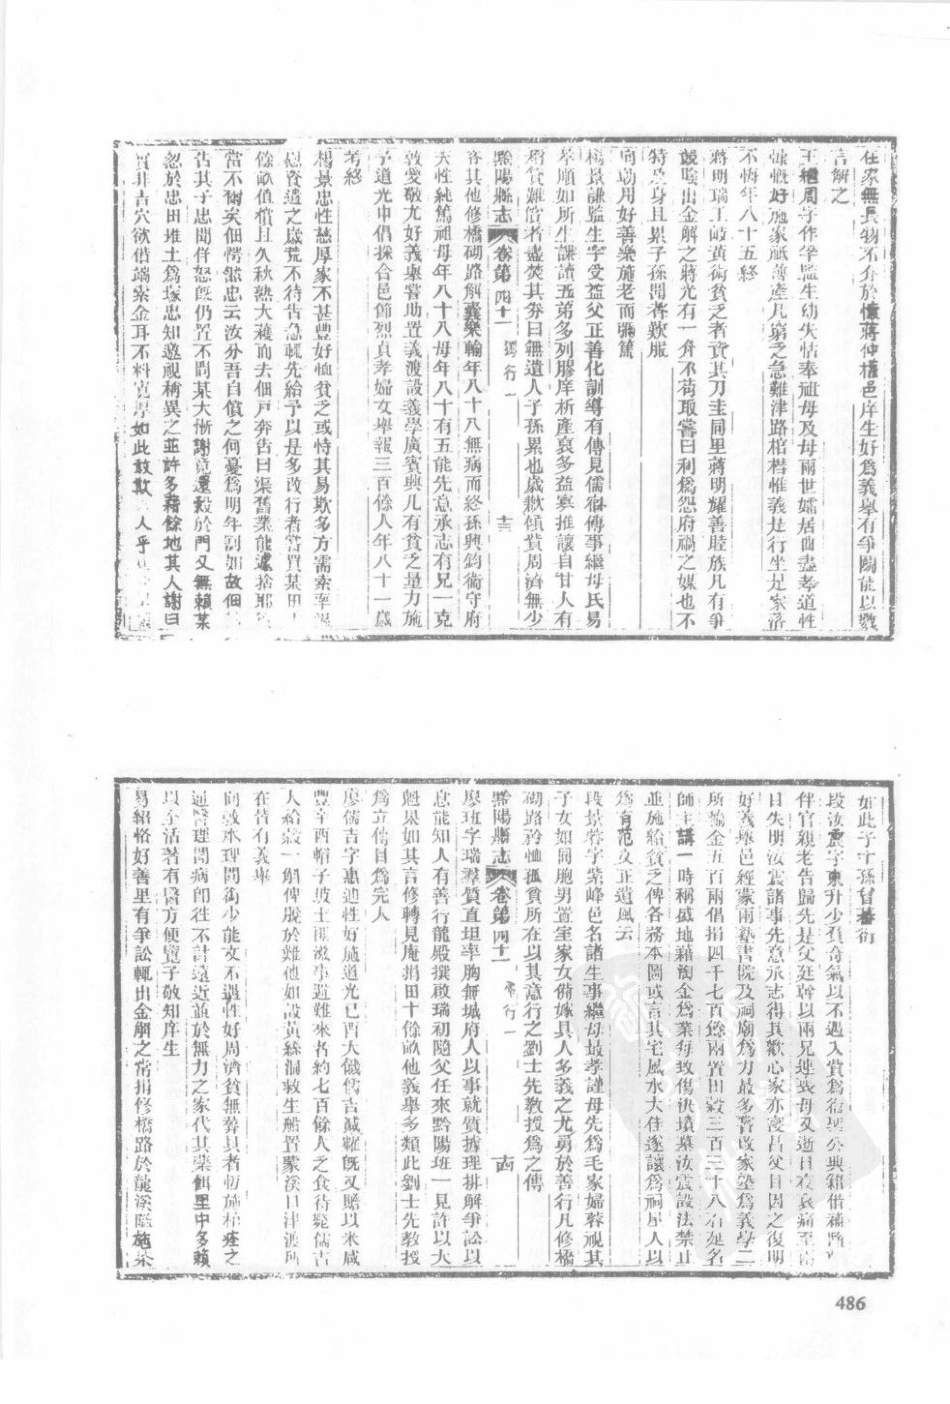 在家無長物不介於懷蔣仲權邑庠生好爲義舉有爭鬩能以數
言解之
王繼周字作孚監生幼失怙奉祖母及母兩世孀居曲盡孝道性
慷慨好施家祇薄產凡窮乏急難津路棺槥惟義是行坐是家落
不悔年八十五終
蔣明瑞工岐黃術貧乏者資其刀圭同里蔣明耀善睦族凡有爭
競喩出金解之蔣光有一介不苟取嘗曰利爲怨府禍之媒也不
特及身且累子孫聞者歎服
向勛用好善樂施老而彌篤
楊景謙監生字受益父正善化訓導有傳見儒宿傳事繼母氏易
孝順如所生課讀五弟多列膠庠析產裒多益寡推讓自甘人有
稱貸難償者盡焚其券曰無遺人子孫累也歲歉傾貲周濟無少
黔陽縣志 卷第四十一 獨行一 十三
吝其他修橋砌路解囊樂輸年八十八無病而終孫興鈞銜守府
天性純篤祖母年八十八母年八十有五能先意承志有兄一克
敦愛敬尤好義舉嘗助置義渡設義學廣賓興凡有貧乏量力施
予道光中倡採合邑節烈貞孝婦女舉報三百餘人年八十一歲
考終
楊景忠性慈厚家不甚豐好恤貧乏或恃其易欺多方需索率
應資遣之歲荒不待告急輒先給予以是多改行者嘗買某田
餘畝值償且久秋熟大穫而去佃戶奔告曰渠舊業能遽捨耶
當不爾矣佃愕然忠云汝分吾自償之何憂爲明年割如故佃
告其子忠聞佯怒旣仍置不問某大慚謝竟還穀於門又無賴某
忽於忠田堆土爲塚忠知邀視稱異之並許多藉餘地其人謝曰
實非吉穴欲借端索金耳不料寬厚如此敢欺 人乎
如此子十孫曾蕃衍
段汝霖字東升少負奇氣以不遇入貲爲 公典籍借補
伴官親老告歸先是父廷幹以兩兄連喪母又逝日夜哀痛至
目失明汝霖諸事先意承志得其歡心家亦寖昌父目因之復明
好義舉邑經蒙兩塾書院及祠廟爲力最多嘗改家塾爲義學二
所輸金五百兩倡捐四千七百餘兩置田穀三百三十八石延名
師主講一時稱盛地藉淘金爲業每致傷決墳墓汝霖設法禁止
並施給貧乏俾各務本圖或言其宅風水大佳遂讓爲祠屋人以
爲有范文正遺風云
段景蓉字紫峰邑名諸生事繼母最孝謹母先爲毛家婦蓉視其
子女如同胞男置室家女備嫁具人多義之尤勇於善行凡修橋
砌路矜恤孤貧所在以其意行之劉士先教授爲之傳
黔陽縣志 卷第四十一 獨行一 十四
廖班字瑞羣質直坦率胸無城府人以事就質據理排解爭訟以
息能知人有善行龍殿撰啟瑞初隨父任來黔陽班一見許以大
魁果如其言修轉見庵捐田十餘畝他義舉多類此劉士先教授
爲立傳目爲完人
廖儒吉字惠迪性好施道光己酉大饑儒吉減糶旣又贍以米咸
豐辛酉帽子坡土匪滋事避難來者約七百餘人乏食待斃儒吉
人給穀一斛俾脫於難他如設黃絲洞救生船置蒙溪口津渡所
在皆有義舉
向敦水理問銜少能文不遇性好周濟貧無葬具者恆施棺瘞之
通醫理聞病卽往不計遠近並於無力之家代其藥餌里中多賴
以全活著有醫方便覽子敬知庠生
易紹恪好善里有爭訟輒出金解之常捐修橋路於龍溪隘施茶
486